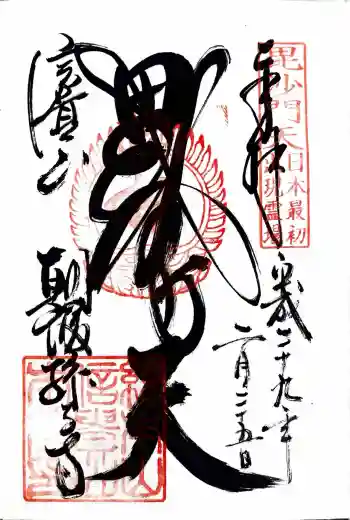 奉拝
平成二十九年
二月二十五日
毘沙門天
日本最初
出現霊場
毘沙門天
信貴山
朝護孫子寺